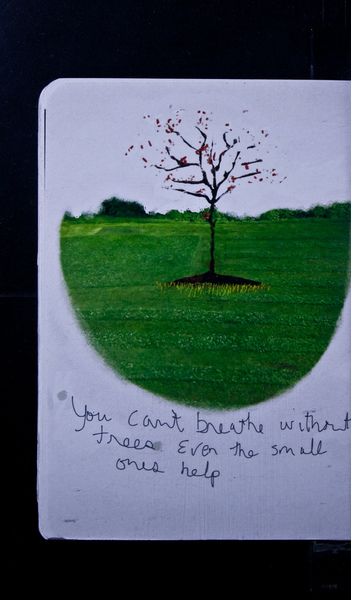 You can't breathe without
trees Even the small
ones help